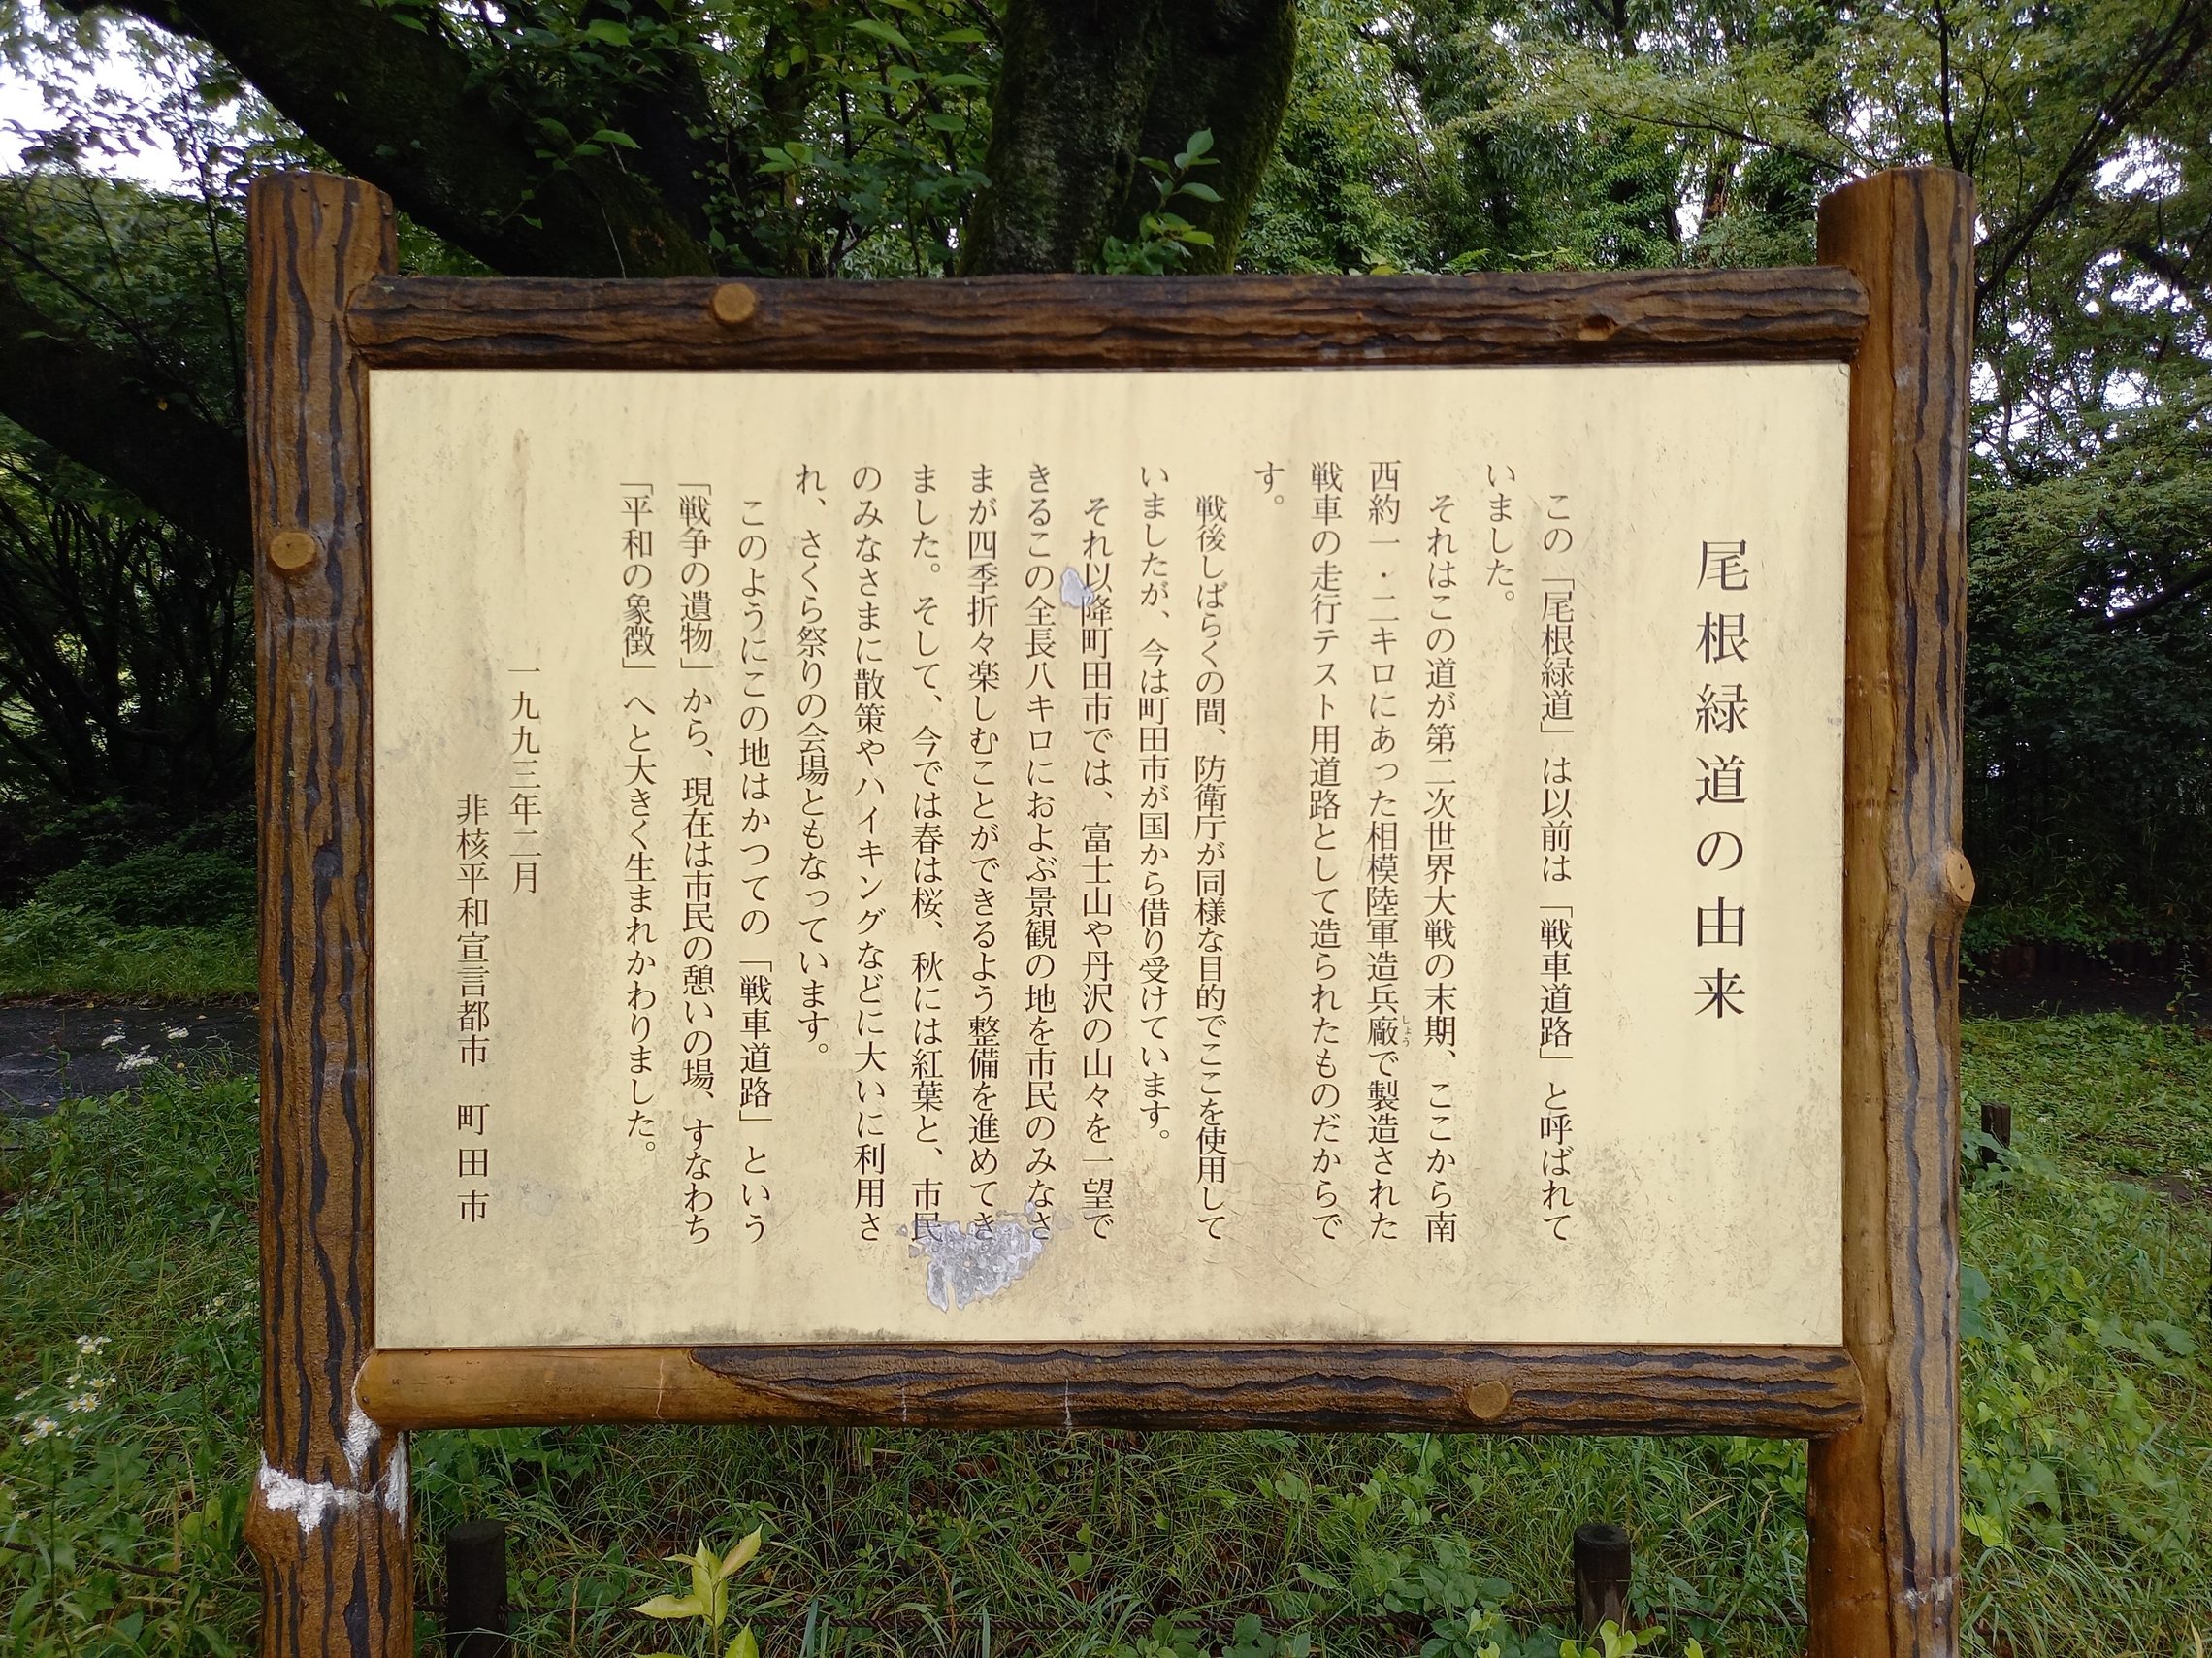 尾根緑道の由来
この「尾根緑道」は以前は「戦車道路」と呼ばれて
いました。
それはこの道が第二次世界大戦の末期、ここから南
西約一・二キロにあった相模陸軍造兵廠で製造された
しょう
戦車の走行テスト用道路として造られたものだからで
す。
戦後しばらくの間、防衛庁が同様な目的でここを使用して
いましたが、今は町田市が国から借り受けています。
それ以降町田市では、富士山や丹沢の山々を一望で
きるこの全長八キロにおよぶ景観の地を市民のみなさ
まが四季折々楽しむことができるよう整備を進めてき
ました。そして、今では春は桜、秋には紅葉と、市民
のみなさまに散策やハイキングなどに大いに利用さ
れ、さくら祭りの会場ともなっています。
このようにこの地はかつての「戦車道路」という
「戦争の遺物」から、現在は市民の憩いの場、すなわち
「平和の象徴」へと大きく生まれかわりました。
一九九三年二月
非核平和宣言都市　町田市